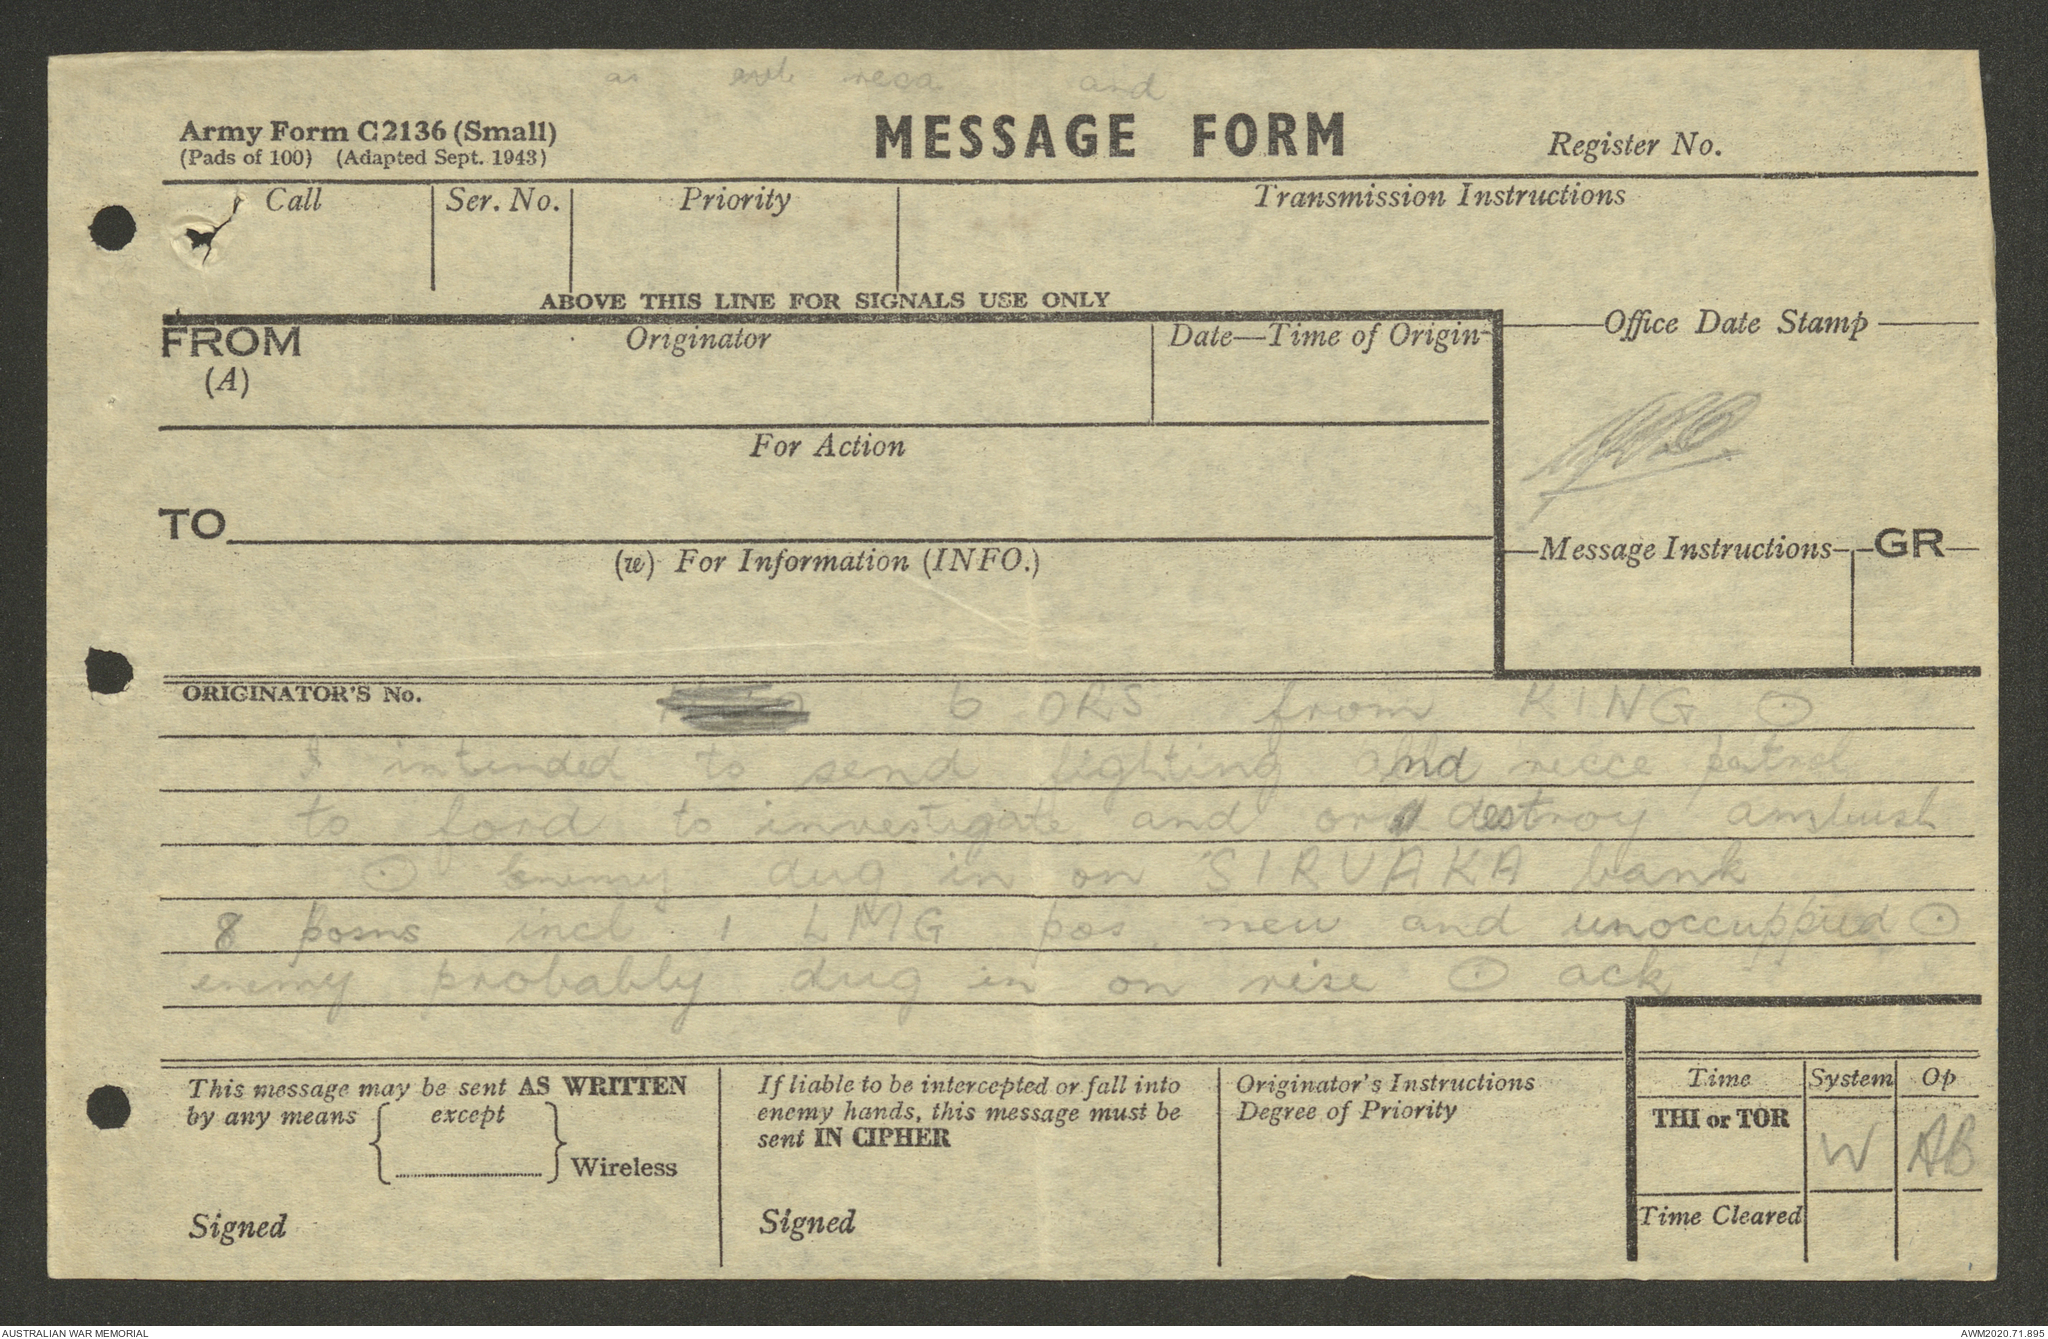 and
Army Form C2136 (Small)
(Pads of 100) (Adapted Sept. 1943)
MESSAGE FORM
Register No.
Call
Ser. No.
Priority
Transmission Instructions
ABOVE THIS LINE FOR SIGNALS USE ONLY
FROM
(A)
Originator
Date—Time of Origin
Office Date Stamp
For Action
TO
(w) For Information (INFO.)
Message Instructions
GR
ORIGINATOR'S No.
6 ORS from KING ⊙
I intended to send fighting and recce patrol
to ford to investigate and or destroy ambush
⊙ Enemy dug in on SIRVAKA bank
8 posns incl 1 LMG pos, new and unoccuppied ⊙
enemy probably dug in on rise ⊙ ack
This message may be sent AS WRITTEN
by any means except
Wireless
Signed
If liable to be intercepted or fall into
enemy hands, this message must be
sent IN CIPHER
Signed
Originator's Instructions
Degree of Priority
Time
System
Op
THI or TOR
W
AB
Time Cleared
AUSTRALIAN WAR MEMORIAL
AWM2020.71.895